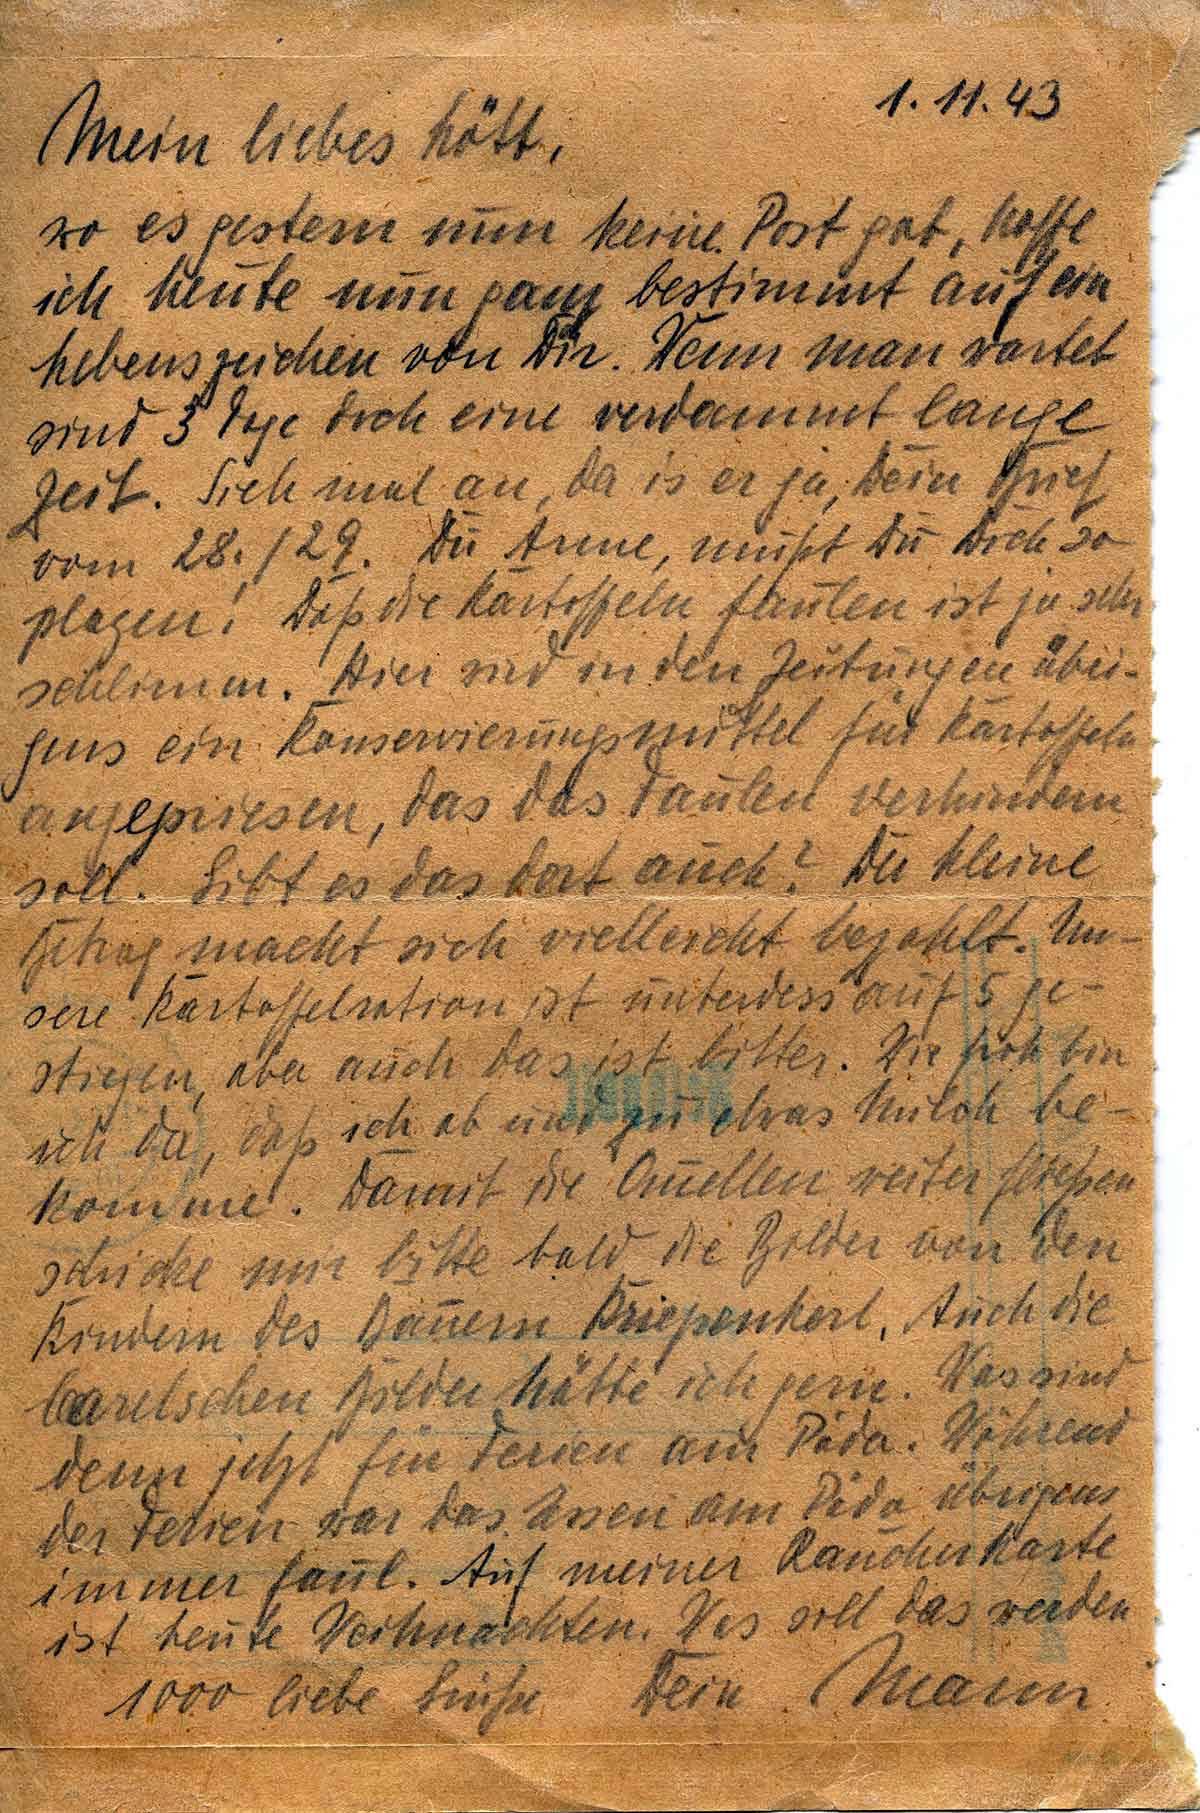 1.11.43
Mein liebes Hött,
wo es gestern nun keine Post gab, hoffe
ich heute nun ganz bestimmt auf ein
Lebenszeichen von Dir. Wenn man wartet
sind 3 Tage doch eine verdammt lange
Zeit. Sieh mal an, da is er ja, Dein Brief
vom 28./29. Du Arme, mußt Du Dich so
plagen! Daß die Kartoffeln faulen ist ja sehr
schlimm. Hier wird in den Zeitungen übri-
gens ein Konservierungsmittel für Kartoffeln
angepriesen, das das Faulen verhindern
soll. Gibt es das dort auch? Der kleine
Betrag macht sich vielleicht bezahlt. Un-
sere Kartoffelration ist unterdess auf 5 ge-
stiegen, aber auch das ist bitter. Wie froh bin
ich da, daß ich ab und zu etwas Milch be-
komme. Damit die Quellen weiter fließen
schicke mir bitte bald die Bilder von den
Kindern des Bauern Kriepenkerl. Auch die
Bilder hätte ich gern. Was sind
denn jetzt für Ferien am Päda. Während
der Ferien war das Essen am Päda übrigens
immer faul. Auf meiner Raucherkarte
ist heute Weihnachten. Was soll das werden
1000 liebe Grüße Dein Mann